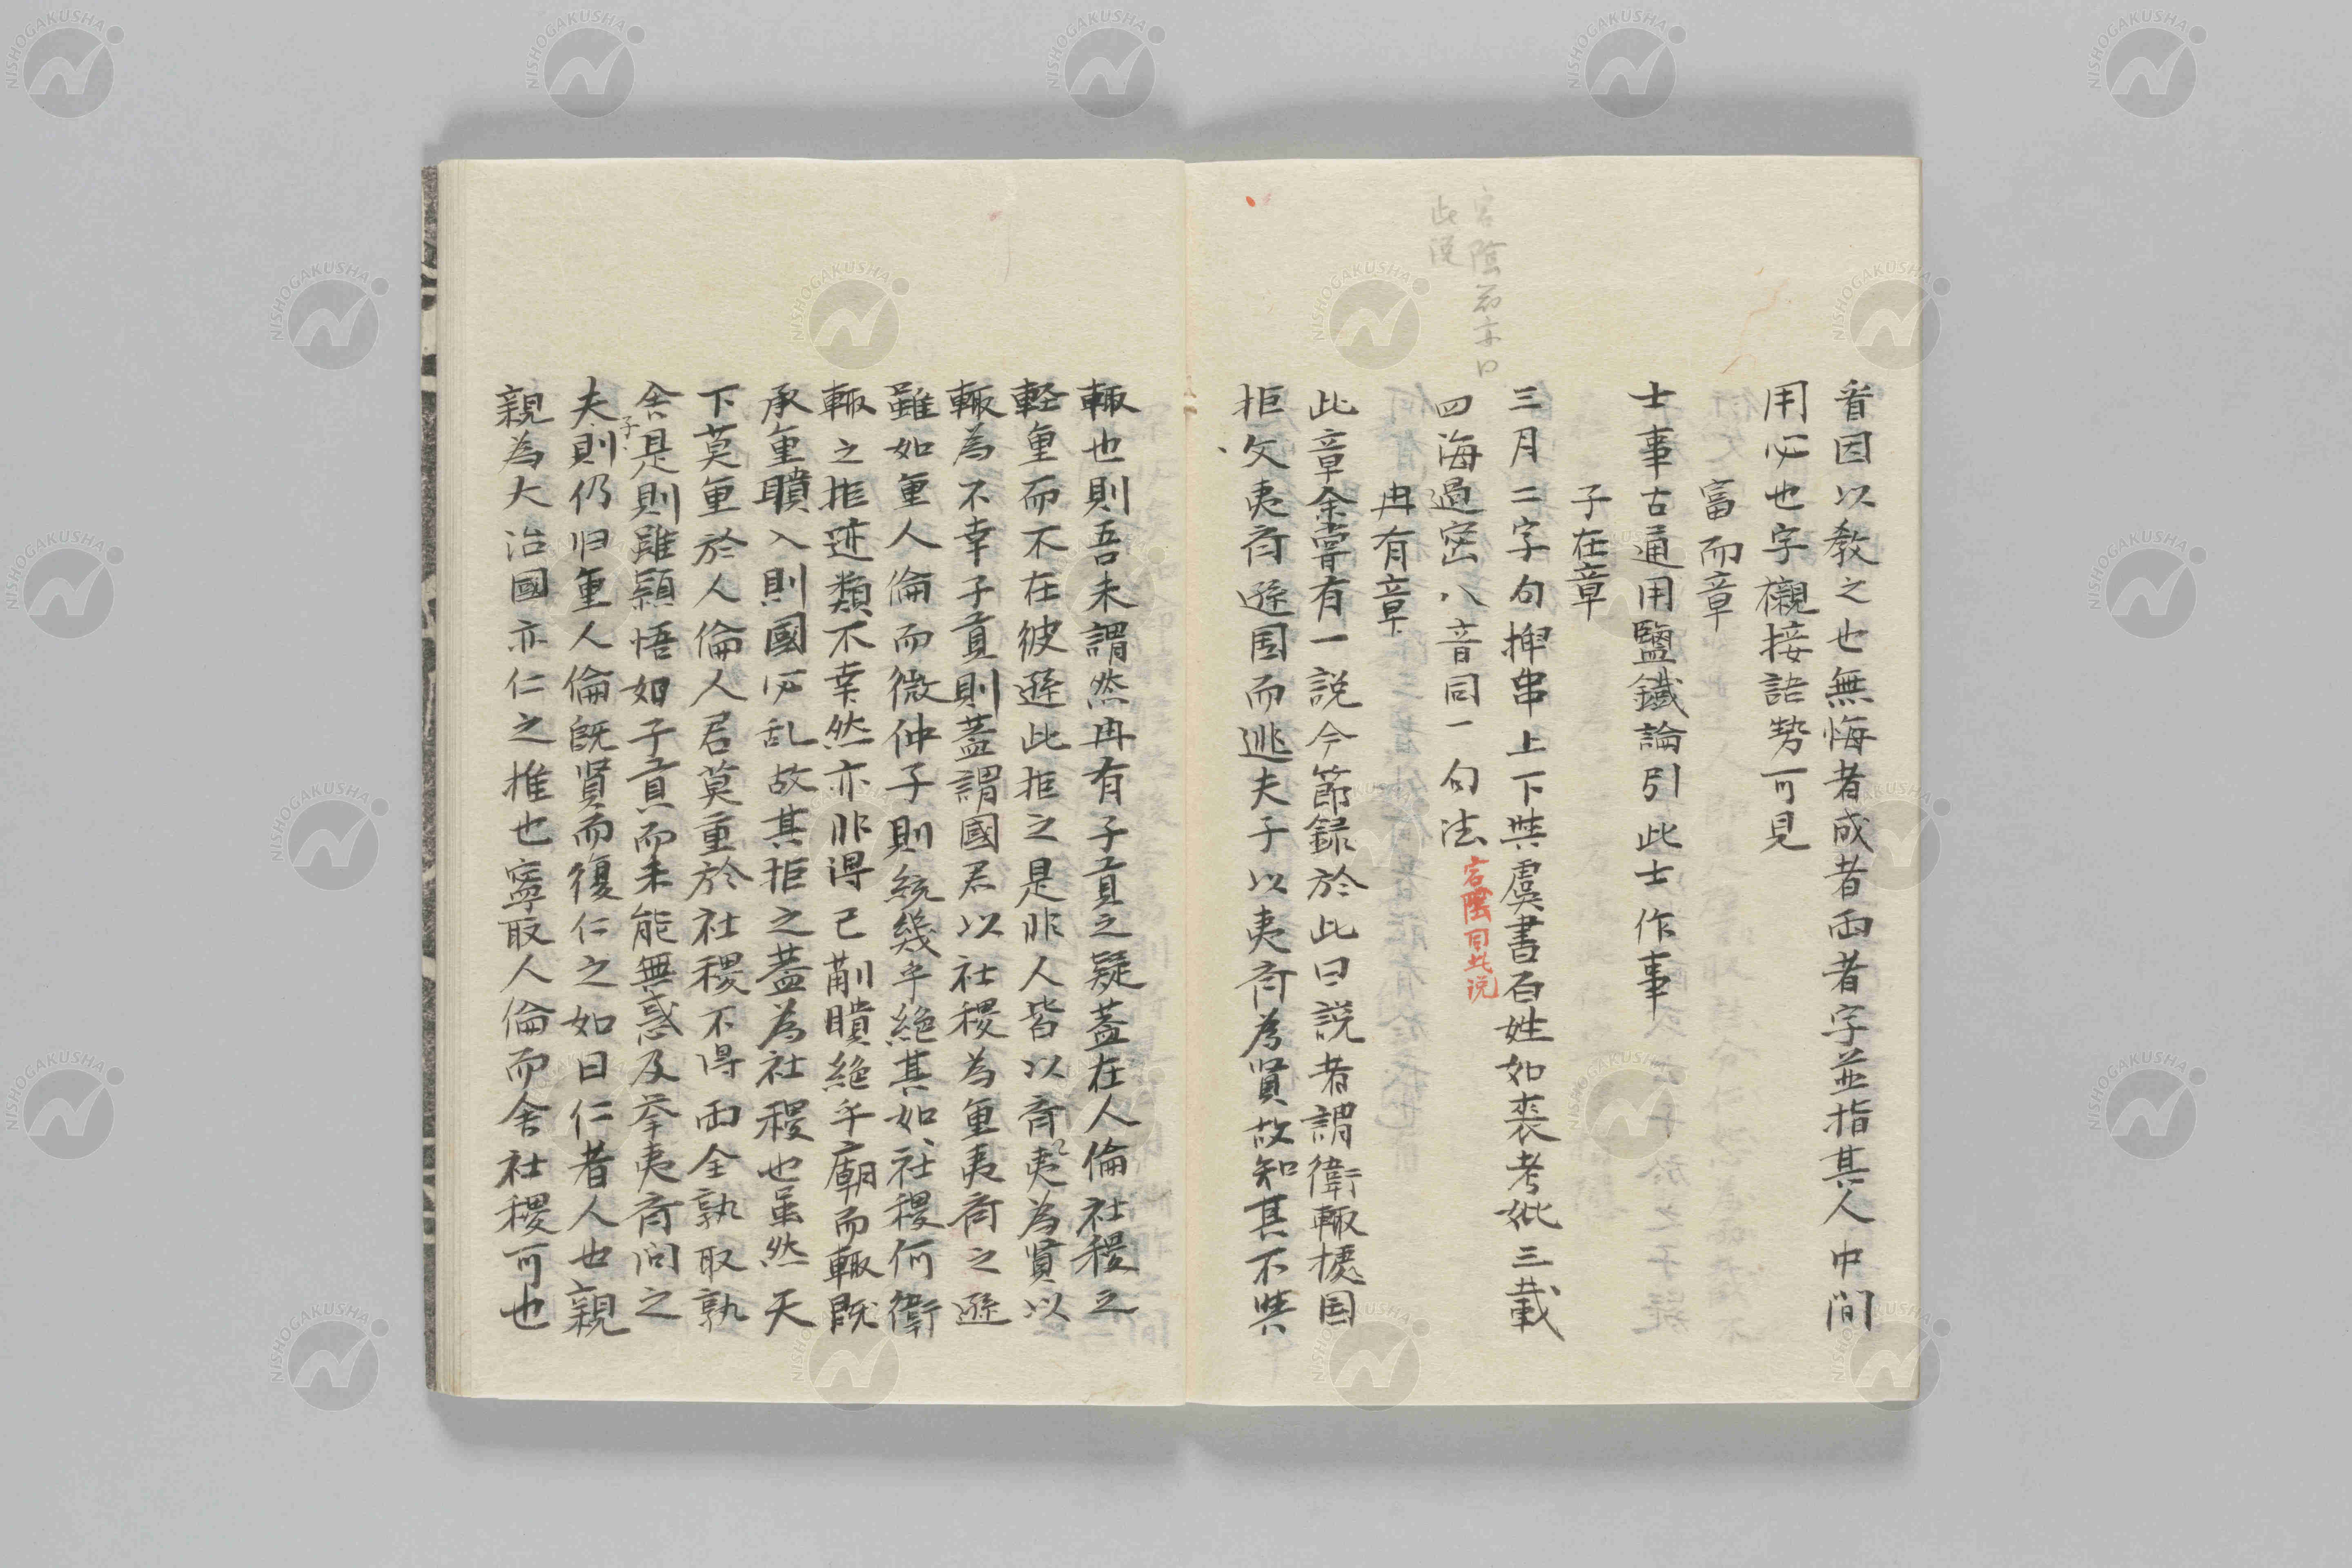 看因以教之也無悔者成者両者字並指其人中間
用必也字襯接語勢可見
富而章
士事古通用鹽鐵論引此士作事
子在章
三月二字句押串上下與虞書百姓如喪考妣三載
四海遏密八音同一句法
宕陰同此説
宕陰翁亦曰
此説
冉有章
此章余嘗有一説今節録於此曰説者謂衛輙據国
拒父夷斉遜国而逃夫子以夷斉為賢故知其不與
輙也則吾未謂然冉有子貢之疑蓋在人倫社稷之
軽重而不在彼遜此拒之是非人皆以斉夷為賢以
輙為不幸子貢則蓋謂國君以社稷為重夷斉之遜
雖如重人倫而微仲子則統幾乎絶其如社稷何衛
輙之拒迹類不幸然亦非得已蒯聵絶乎廟而輙既
承重聵入則國必乱故其拒之蓋為社稷也虽然天
下莫重於人倫人君莫重於社稷不得両全孰取孰
舎是則雖穎悟如子貢而未能無惑及挙夷斉問之
夫子則仍归重人倫既賢而復仁之如曰仁者人也親
親為大治國亦仁之推也寧取人倫而舎社稷可也
NISHOGAKUSHA